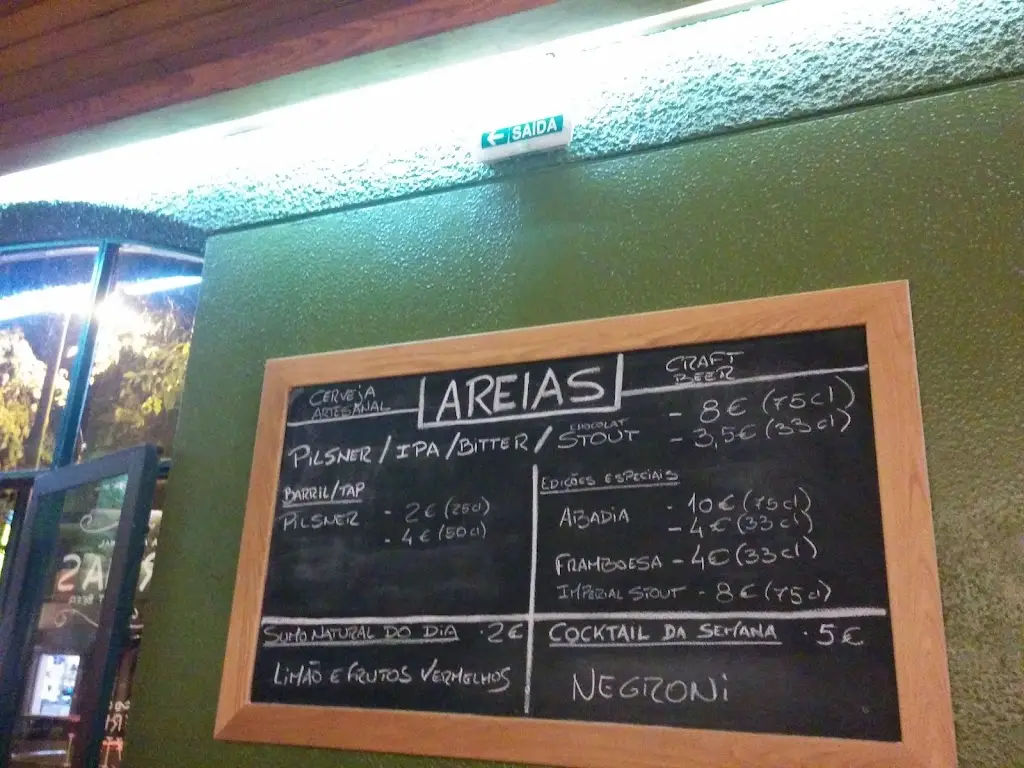 ← SAÍDA
CERVEJA ARTESANAL
AREIAS
CRAFT BEER
PILSNER / IPA / BITTER / CHOCOLAT STOUT
- 8€ (75cl)
- 3,5€ (33cl)
BARRIL/TAP
PILSNER - 2€ (25cl)
- 4€ (50cl)
EDIÇÕES ESPECIAIS
ABADIA - 10€ (75cl)
- 4€ (33cl)
FRAMBOESA - 4€ (33cl)
IMPERIAL STOUT - 8€ (75cl)
SUMO NATURAL DO DIA · 2€
LIMÃO E FRUTOS VERMELHOS
COCKTAIL DA SEMANA · 5€
NEGRONI